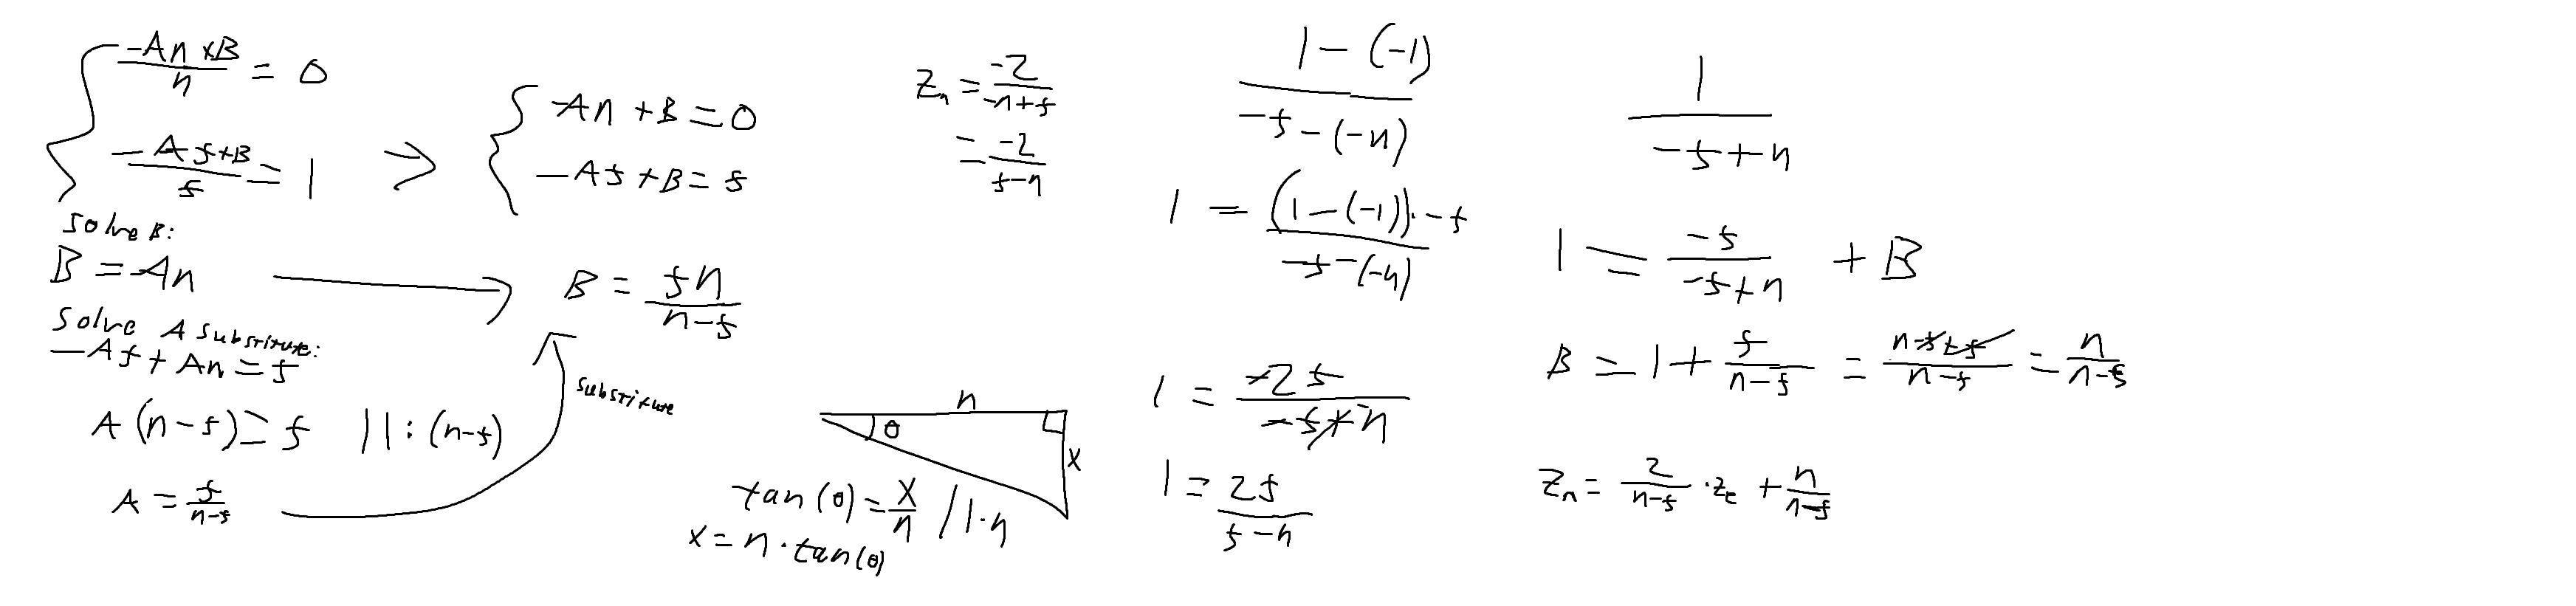 -An+B/n = 0
-Af+B/f = 1
-An + B = 0
-Af + B = f
solve B:
B = An
solve A substitute:
-Af + An = f
A (n-f) = f || : (n-f)
A = f/n-f
B = fn/n-f
substitute
n
θ
x
tan(θ) = x/n || · n
x = n · tan(θ)
Zn = -2/-n+f
= -2/f-n
1 - (-1)/-f - (-n)
1 = (1-(-1)) · -f/-f - (-n)
1 = -2f/-f+-n
1 = 2f/f-n
1/-f+n
1 = -f/-f+n + B
B = 1 + f/n-f = n-f+f/n-f = n/n-f
Zn = 2/n-f · Ze + n/n-f